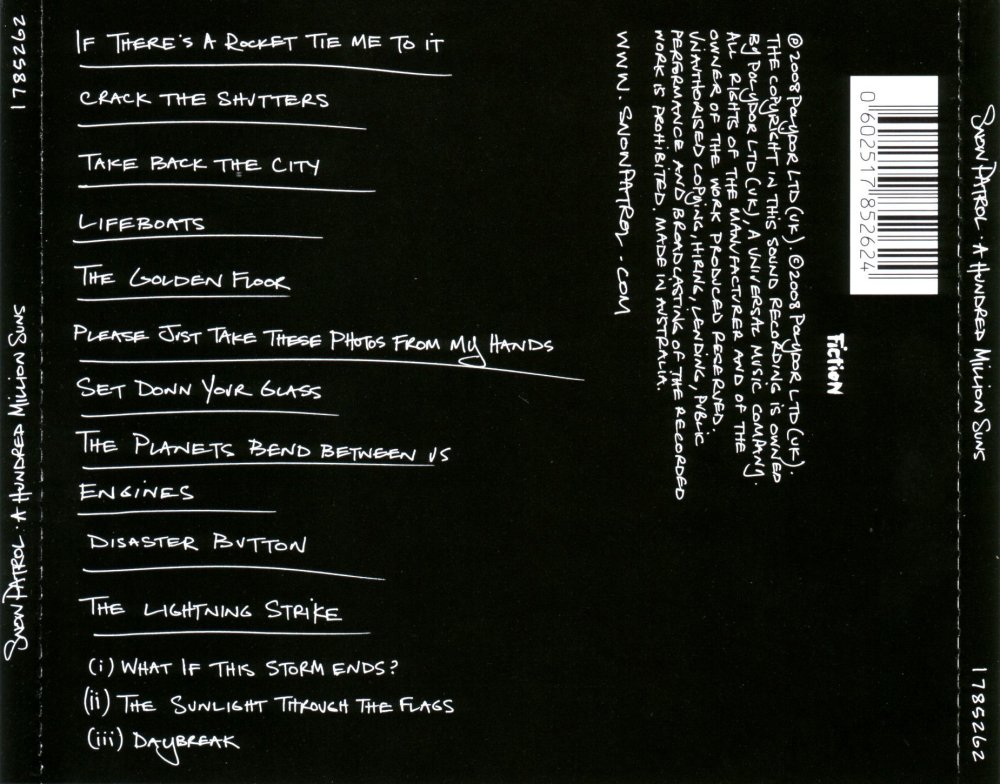 IF THERE'S A ROCKET TIE ME TO IT
CRACK THE SHUTTERS
TAKE BACK THE CITY
LIFEBOATS
THE GOLDEN FLOOR
PLEASE JUST TAKE THESE PHOTOS FROM MY HANDS
SET DOWN YOUR GLASS
THE PLANETS BEND BETWEEN US
ENGINES
DISASTER BUTTON
THE LIGHTNING STRIKE
(i) WHAT IF THIS STORM ENDS?
(ii) THE SUNLIGHT THROUGH THE FLAGS
(iii) DAYBREAK
℗2008 POLYDOR LTD (UK). ©2008 POLYDOR LTD (UK).
THE COPYRIGHT IN THIS SOUND RECORDING IS OWNED
BY POLYDOR LTD (UK), A UNIVERSAL MUSIC COMPANY.
ALL RIGHTS OF THE MANUFACTURER AND OF THE
OWNER OF THE WORK PRODUCED RESERVED.
UNAUTHORISED COPYING, HIRING, LENDING, PUBLIC
PERFORMANCE AND BROADCASTING OF THE RECORDED
WORK IS PROHIBITED. MADE IN AUSTRALIA.
WWW.SNOWPATROL.COM
Fiction
0 602517 852624
SNOW PATROL · A HUNDRED MILLION SUNS
1785262
SNOW PATROL · A HUNDRED MILLION SUNS
1785262